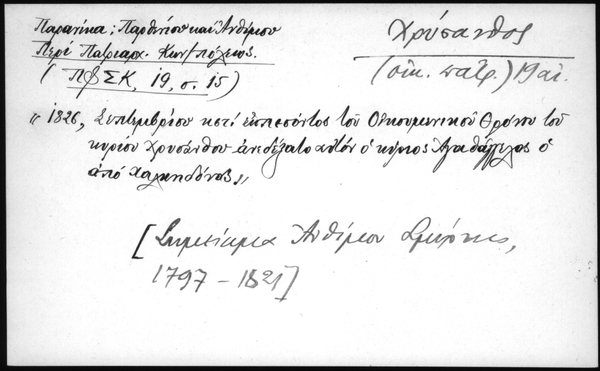 Παρανίκα: Παρθενίου καὶ Ἀνθίμου
Περὶ Πατριαρχ. Κων/πόλεως.
(ΠΦΣΚ, 19, σ. 15)
Χρύσανθος
(οἰκ. πατρ.) 19 αἰ.
«1826, Σεπτεμβρίου κστ́ ἐκπεσόντος τοῦ Οἰκουμενικοῦ Θρόνου τοῦ
κυρίου Χρυσάνθου ἀνεδέξατο αὐτόν ὁ κύριος Ἀγαθάγγελος ὁ
ἀπό Χαλκηδόνος»
[Σημείωμα Ἀνθίμου Σμύρνης,
1797 - 1821]